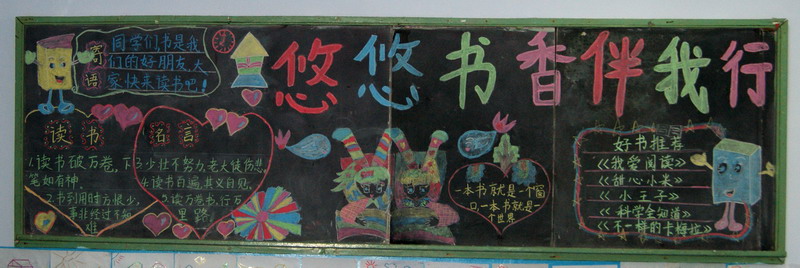 悠悠书香伴我行
寄语
同学们,书是我
们的好朋友,大
家快来读书吧!
读书名言
1.读书破万卷,下
笔如有神.
2.书到用时方恨少,
事非经过不知
难
3.少壮不努力,老大徒伤悲
4.读书百遍,其义自见.
5.读万卷书,行万
里路
一本书就是一个窗
口一本书就是一
个世界
好书推荐
《我爱阅读》
《甜心小米》
《小王子》
《科学全知道》
《不一样的卡梅拉》